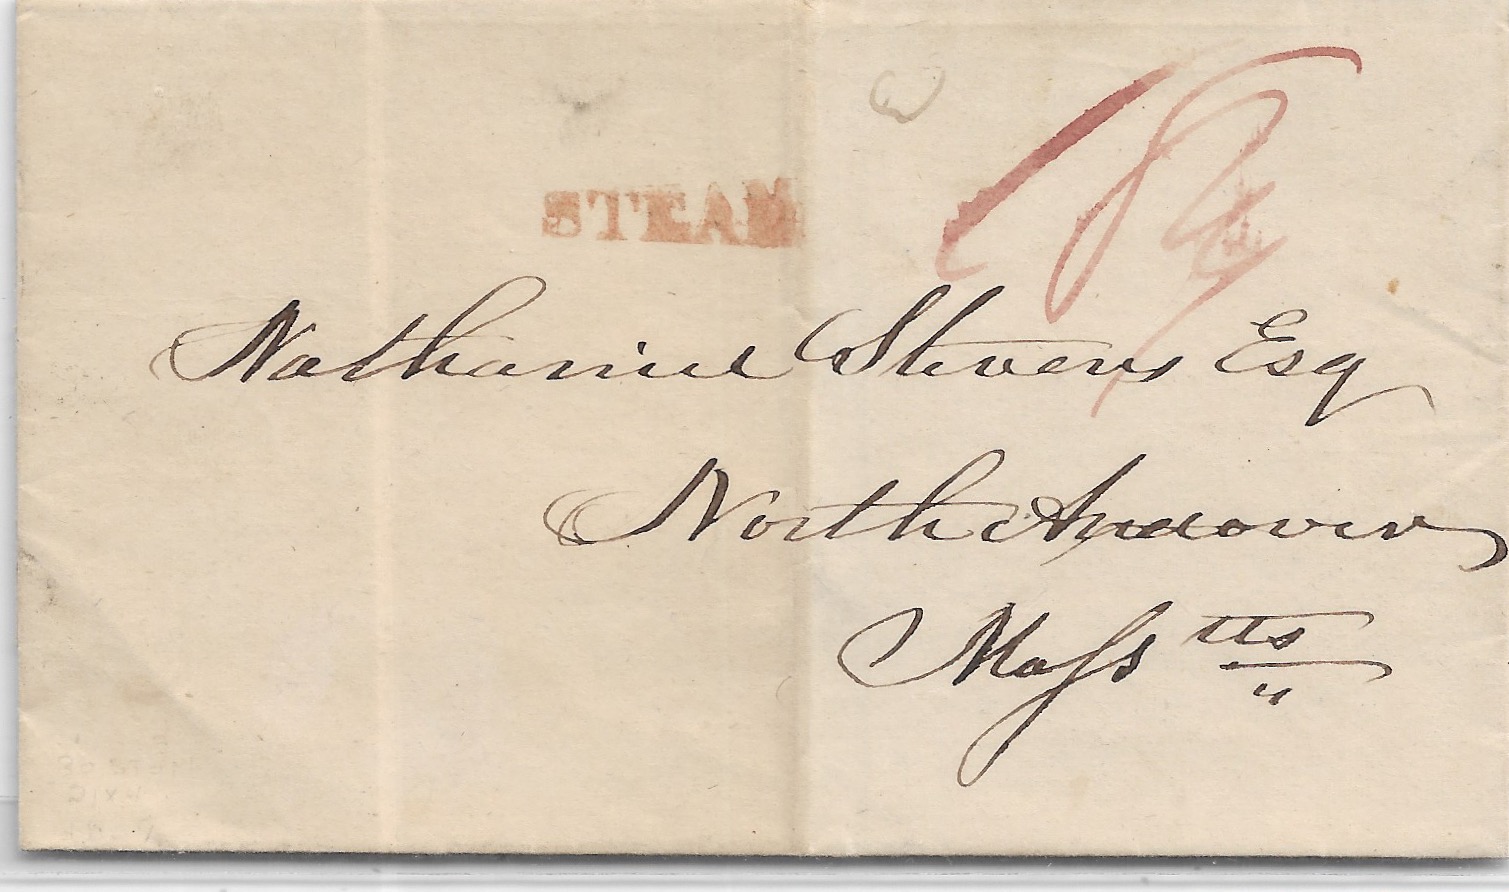 STEAM
Nathaniel Stevens Esq
North Andover
Mass tts